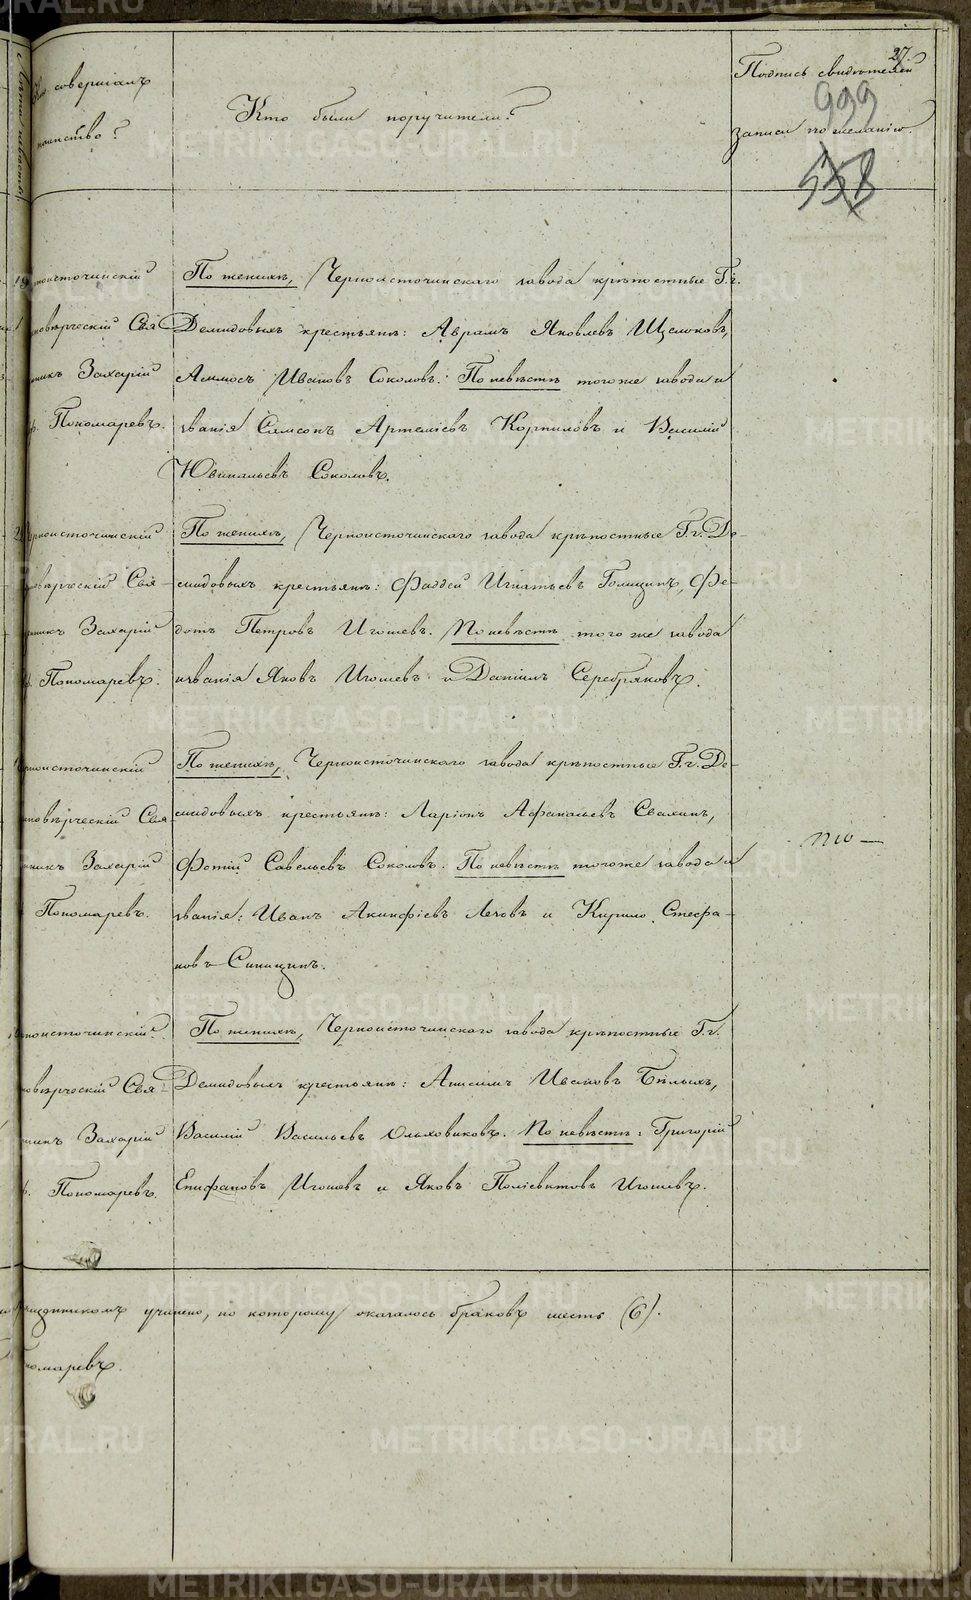 27.
Кто совершалъ
таинство?
Кто были поручители?
Подпись свидѣтелей
записи по желанію.
999
558
Черноисточинскій
Единовѣрческій Свя-
щенникъ Захарій
Пономаревъ.
По женихѣ, Черноисточинскаго завода крѣпостные Г.г.
Демидовыхъ крестьяне: Аврамъ Яковлевъ Щелоковъ,
Иванъ Соколовъ. По невѣстѣ того же завода и
званія Самсонъ Артеміевъ Корниловъ и Василій
Ювинальевъ Соколовъ.
Черноисточинскій
Единовѣрческій Свя-
щенникъ Захарій
Пономаревъ.
По женихѣ, Черноисточинскаго завода крѣпостные Г.г. Де-
мидовыхъ крестьяне: Фаддей Игнатьевъ Голицинъ, Фе-
дотъ Петровъ Игошевъ. По невѣстѣ того же завода
и званія Яковъ Игошевъ и Даніилъ Серебряковъ.
Черноисточинскій
Единовѣрческій Свя-
щенникъ Захарій
Пономаревъ.
По женихѣ, Черноисточинскаго завода крѣпостные Г.г. Де-
мидовыхъ крестьяне: Ларіонъ Афанасьевъ Свахинъ,
Фотій Савельевъ Соколовъ. По невѣстѣ того же завода и
званія: Иванъ Акинфіевъ Леховъ и Кирило Стефа-
новъ Синицинъ.
Черноисточинскій
Единовѣрческій Свя-
щенникъ Захарій
Пономаревъ.
По женихѣ, Черноисточинскаго завода крѣпостные Г.г.
Демидовыхъ крестьяне: Анисимъ Ивановъ Бѣлыхъ,
Василій Васильевъ Ольховиковъ. По невѣстѣ: Григорій
Епифановъ Игошевъ и Яковъ Поліевктовъ Игошевъ.
учинено, по которому оказалось браковъ шесть (6).
Пономаревъ.
METRIKI.GASO-URAL.RU